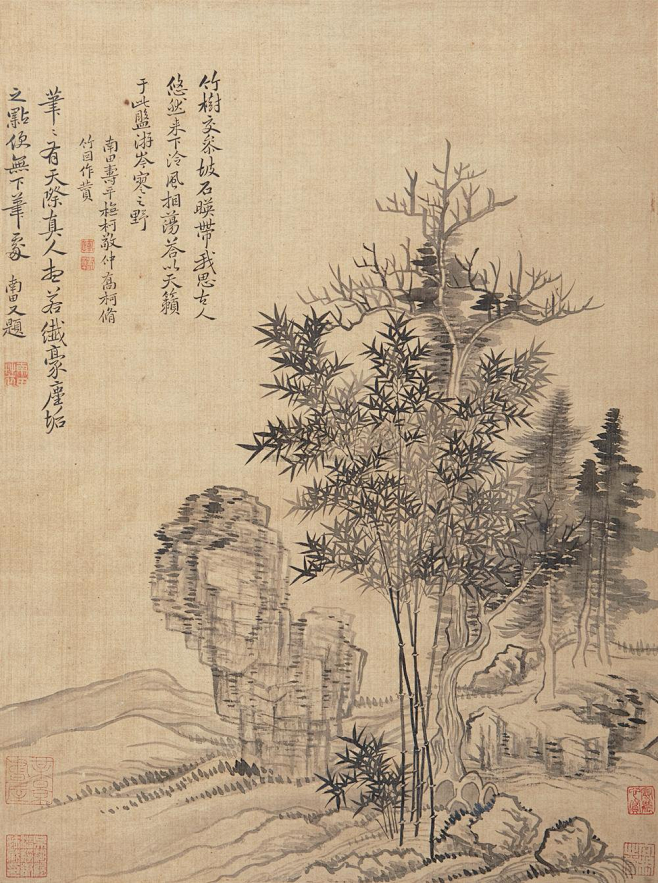 竹樹交參坡石暎帶我思古人
悠然来下泠風相蕩荅以天籟
于此盤游岑寂之野
南田壽平橅柯敬仲喬柯脩
竹因作賛
筆〻有天際真人想若纖豪塵垢
之點便無下筆處 南田又題